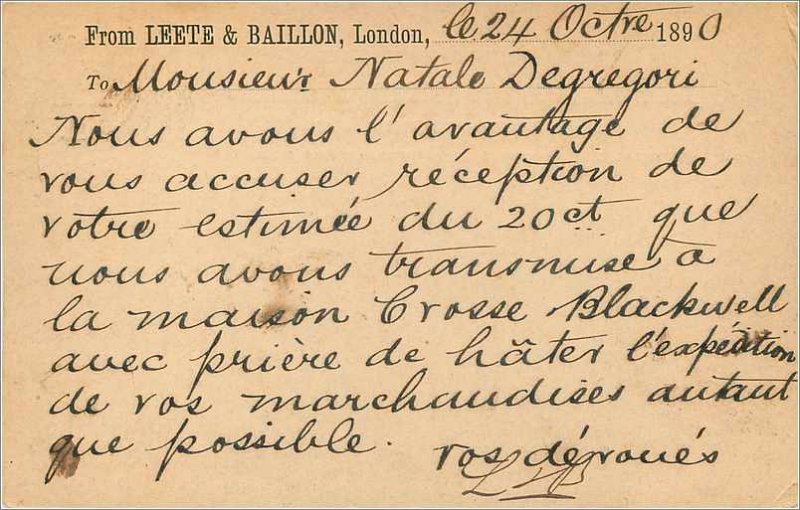 From LEETE & BAILLON, London, le 24 Octre 1890
To Monsieur Natale Degregori
Nous avons l'avantage de
vous accuser réception de
votre estimée du 20 ct. que
nous avons transmise à
la maison Crosse Blackwell
avec prière de hâter l'expédition
de vos marchandises autant
que possible.
vos dévoués
L & B